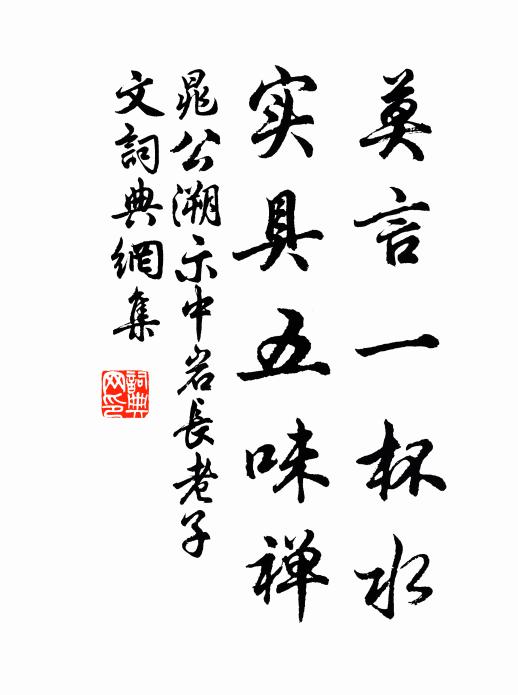 莫言一杯水
实具五味禅
晁公溯示中岩長老子
文詞典網集
詞典网印